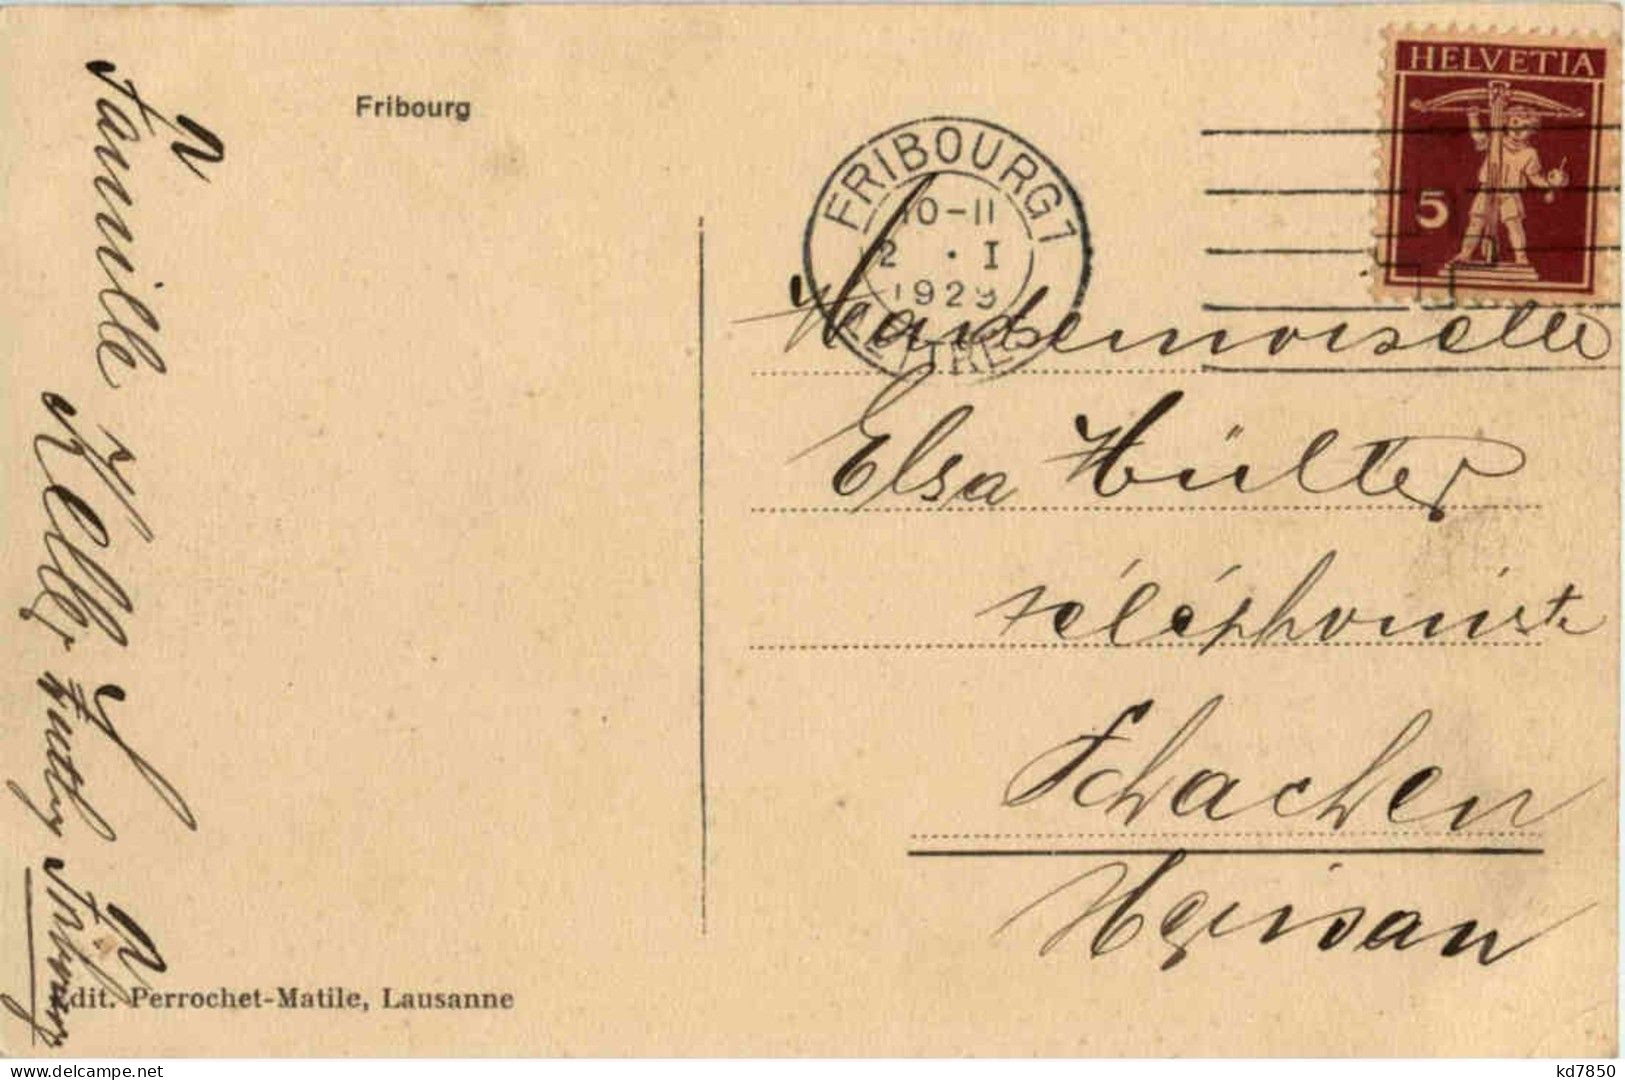 Fribourg
HELVETIA
5
FRIBOURG 1
10-11
2 · I
1929
LETTRES
Mademoiselle
Elsa Hülter
téléphoniste
Schachen
Herisau
Famille
Keller
Fribourg
Edit. Perrochet-Matile, Lausanne
delcampe.net
kd7850